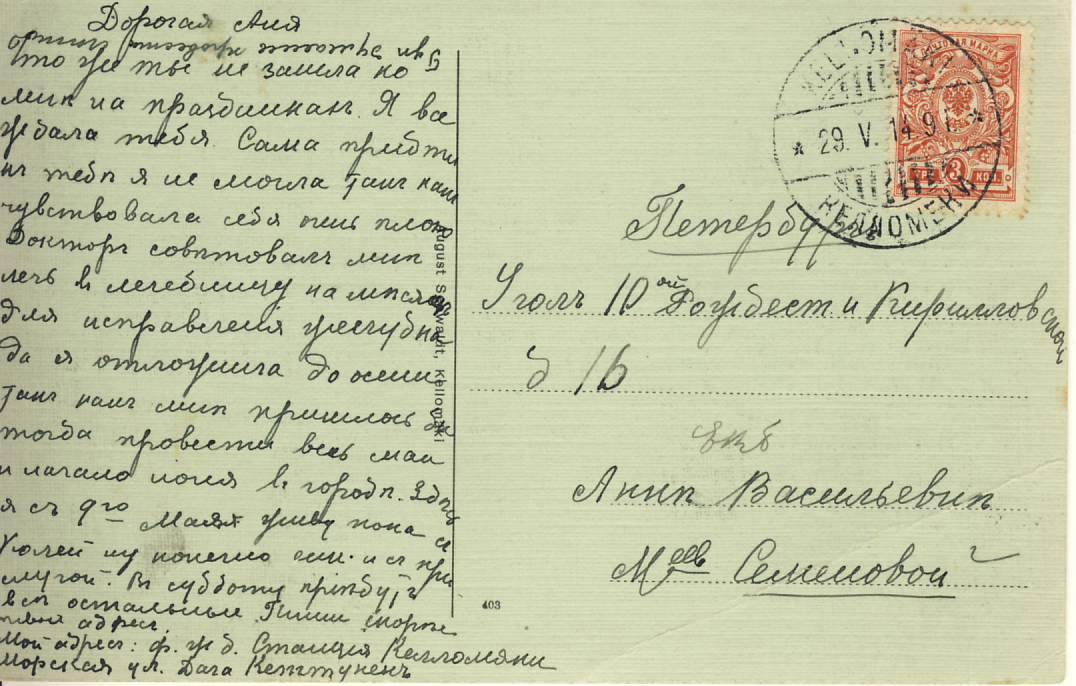 Дорогая Аня
что же ты не зашла ко
мнѣ на праздникахъ. Я все
ждала тебя. Сама придти
къ тебѣ я не могла такъ какъ
чувствовала себя очень плохо
Докторъ совѣтовалъ мнѣ
лечь въ лечебницу на мѣсяцъ
для исправленія желудка
да я отложила до осени
такъ какъ мнѣ пришлось бы
тогда провести весь май
и начало іюня въ городѣ. Здѣсь
я съ 9го Мая живу пока съ
Юлей ну конечно и съ при
слугой. Въ субботу пріѣдутъ
всѣ остальные Пиши скорѣе
твой адресъ.
Мой адресъ: Ф. ж д. Станція Келломяки
Морская ул. Дача Кеттуненъ
August Schwardt, Kellomäki
403
KELLOMÄKI
29. V. 14
КЕЛЛОМЯКИ
ПОЧТОВАЯ МАРКА
3 КОП.
Петербургъ
Уголъ 10ой Рождест и Кирилловской
д 1Б
Аннѣ Васильевнѣ
Семеновой